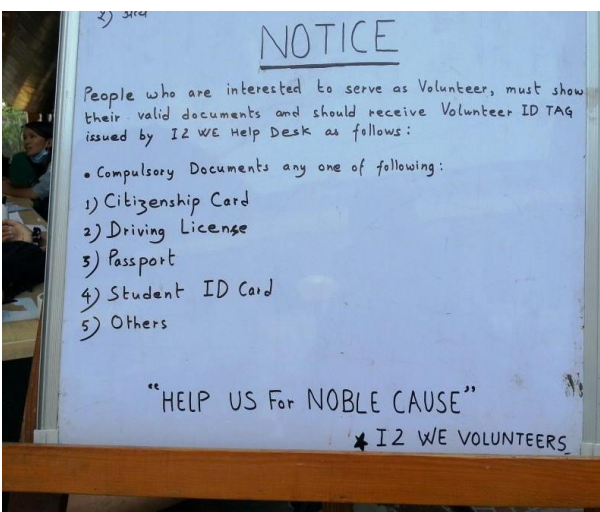 २) अन्य
NOTICE
People who are interested to serve as Volunteer, must show
their valid documents and should receive Volunteer ID TAG
issued by I2 WE Help Desk as follows:
• Compulsory Documents any one of following:
1) Citizenship Card
2) Driving License
3) Passport
4) Student ID Card
5) Others
"HELP US For NOBLE CAUSE"
★ I2 WE VOLUNTEERS